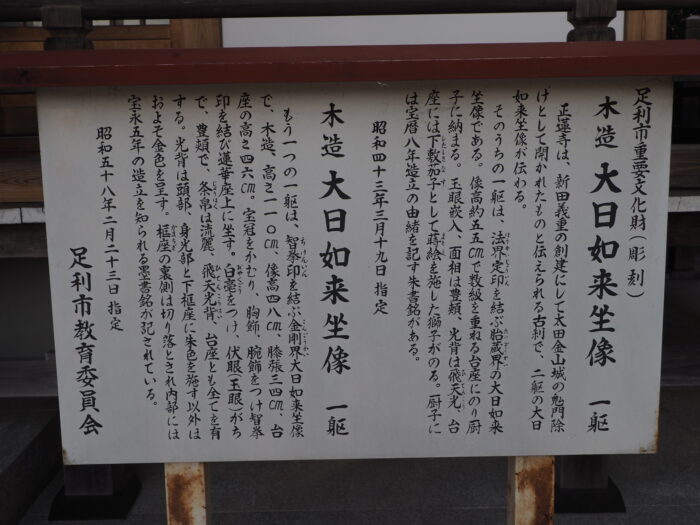 足利市重要文化財(彫刻)
木造 大日如来坐像 一躯
正蓮寺は、新田義重の創建にして太田金山城の鬼門除
けとして開かれたものと伝えられる古刹で、二躯の大日
如来坐像が伝わる。
そのうちの一躯は、法界定印を結ぶ胎蔵界の大日如来
坐像である。像高約五五㎝で数級を重ねる台座にのり厨
子に納まる。玉眼嵌入、面相は豊頬、光背は飛天光、台
座には下敷茄子として蒔絵を施した獅子がのる。厨子に
は宝暦八年造立の由緒を記す朱書銘がある。
昭和四十三年三月十九日 指定
木造 大日如来坐像 一躯
もう一つの一躯は、智拳印を結ぶ金剛界大日如来坐像
で、木造、高さ一一〇㎝、像高四八㎝、膝張三四㎝、台
座の高さ四六㎝。宝冠をかむり、胸飾、腕飾をつけ智拳
印を結び蓮華座上に坐す。白毫をつけ 伏眼(玉眼)がち
で、豊頬で、条帛は流麗、飛天光背、台座とも全てを有
する。光背は頭部、身光部と下框座に朱色を施す以外は
およそ金色を呈す。框座の裏側は切り落とされ内部には
宝永五年の造立を知られる墨書銘が記されている。
昭和五十八年二月二十三日 指定
足利市教育委員会